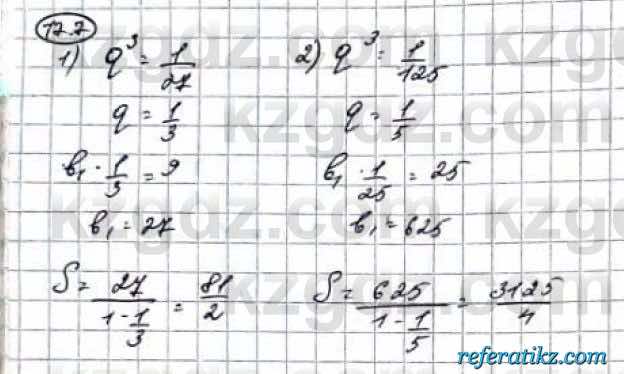 17.7
1) q³ = 1/27
q = 1/3
b₁ · 1/3 = 9
b₁ = 27
S = 27/(1 - 1/3) = 81/2
2) q³ = 1/125
q = 1/5
b₁ · 1/25 = 25
b₁ = 625
S = 625/(1 - 1/5) = 3125/4
kzgdz.com
referatikz.com